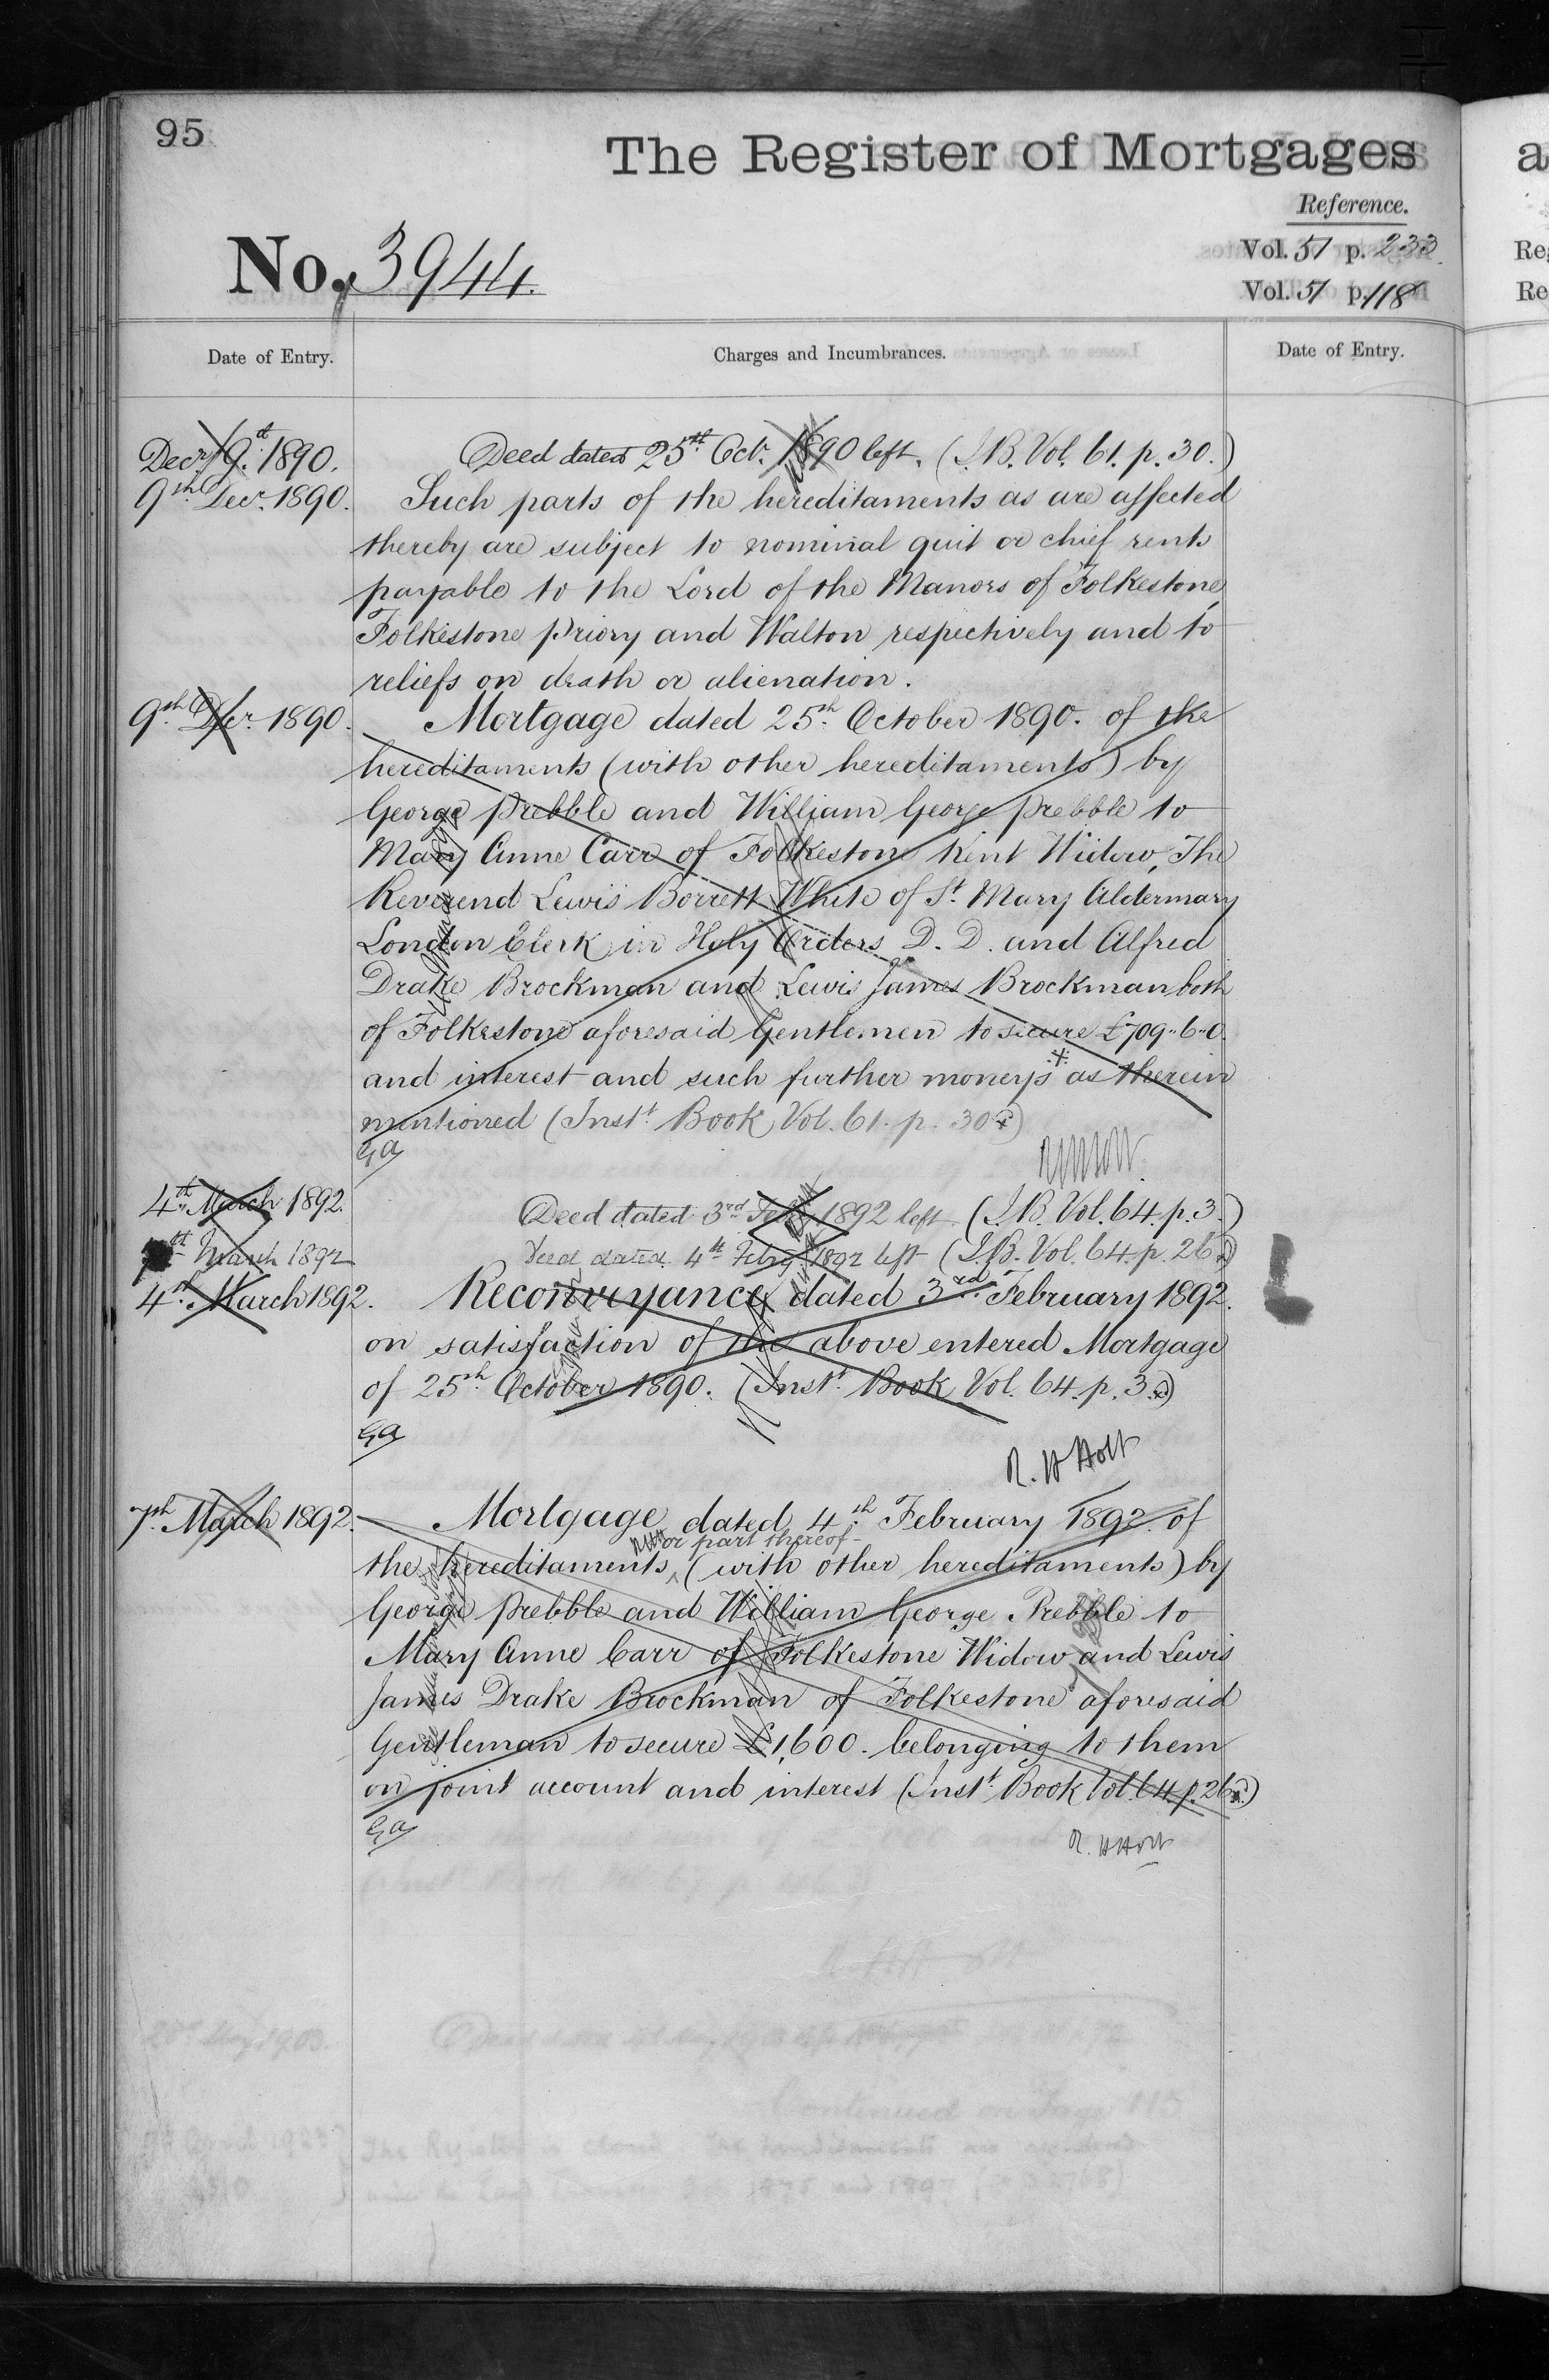 95
The Register of Mortgages
Reference.
No. 3944.
Vol. 51 p. 233.
Vol. 51 p. 118
Date of Entry.
Charges and Incumbrances.
Date of Entry.
Decr. 9th. 1890.
Deed dated 25th. Oct. 1890 left. (I.B. Vol. 61. p. 30.)
9th Decr. 1890.
Such parts of the hereditaments as are affected
thereby are subject to nominal quit or chief rents
payable to the Lord of the Manors of Folkestone,
Folkestone Priory and Walton respectively and to
reliefs on death or alienation.
9th Decr. 1890.
Mortgage dated 25th. October 1890. of the
hereditaments (with other hereditaments) by
George Prebble and William George Prebble to
Mary Anne Carr of Folkestone Kent Widow, The
Reverend Lewis Borrett White of St. Mary Aldermary
London Clerk in Holy Orders D. D. and Alfred
Drake Brockman and Lewis James Brockman both
of Folkestone aforesaid Gentlemen to secure £709..6..0.
and interest and such further moneys as therein
mentioned (Instt. Book Vol. 61. p. 30.)
GA
4th. March 1892.
Deed dated 3rd Feby 1892 left (I.B. Vol. 64. p. 3.)
7th March 1892
Deed dated 4th Feby 1892 left (I.B. Vol. 64. p. 26)
4th. March 1892.
Reconveyance dated 3rd. February 1892.
on satisfaction of the above entered Mortgage
of 25th. October 1890. (Instt. Book Vol. 64. p. 3.)
GA
R. H Holt
7th. March 1892.
Mortgage dated 4th. February 1892. of
or part thereof
the hereditaments (with other hereditaments) by
George Prebble and William George Prebble to
Mary Anne Carr of Folkestone Widow and Lewis
James Drake Brockman of Folkestone aforesaid
Gentleman to secure £1,600. belonging to them
on joint account and interest (Instt. Book Vol. 64. p. 26.)
GA
R. H Holt
a
Re
Re